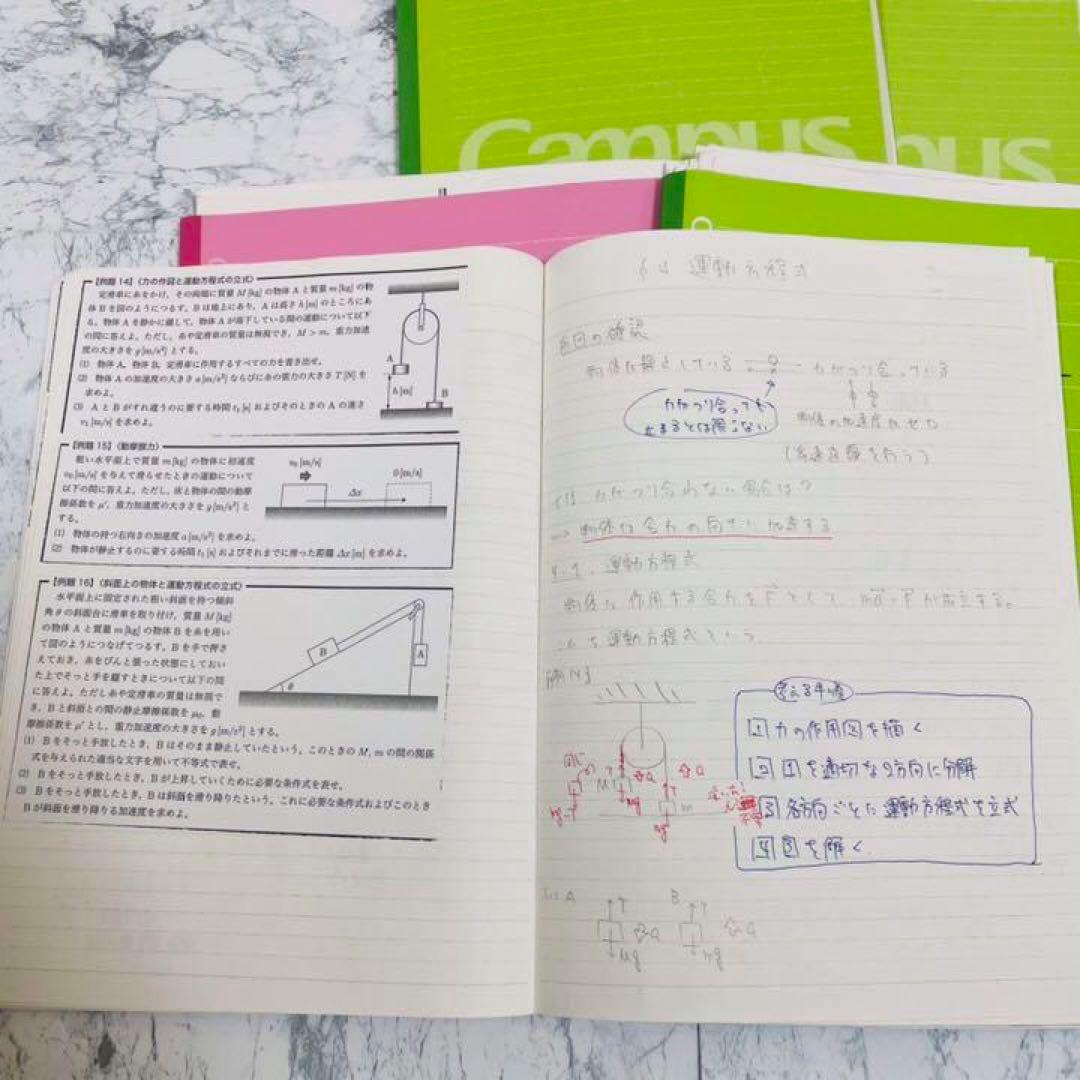 Campus
pus
【例題 14】〈力の作図と運動方程式の立式〉
定滑車に糸をかけ,その両端に質量 M [kg] の物体 A と質量 m [kg] の物
体 B を図のようにつるす。B は地上にあり,A は高さ h [m] のところにあ
る。物体 A を静かに離して,物体 A が落下している間の運動について以下
の問に答えよ。ただし,糸や定滑車の質量は無視でき,M > m,重力加速
度の大きさを g [m/s²] とする。
(1) 物体 A,物体 B,定滑車に作用するすべての力を書き出せ。
(2) 物体 A の加速度の大きさ a [m/s²] ならびに糸の張力の大きさ T [N] を
求めよ。
(3) A と B がすれ違うのに要する時間 t₁ [s] およびそのときの A の速さ
v₁ [m/s] を求めよ。
A
h [m]
B
【例題 15】〈動摩擦力〉
粗い水平面上で質量 m [kg] の物体に初速度
v₀ [m/s] を与えて滑らせたときの運動について
以下の問に答えよ。ただし,床と物体の間の動摩
擦係数を μ′,重力加速度の大きさを g [m/s²] と
する。
(1) 物体の持つ右向きの加速度 a [m/s²] を求めよ。
(2) 物体が静止するのに要する時間 t₁ [s] およびそれまでに滑った距離 Δx [m] を求めよ。
v₀ [m/s]
0 [m/s]
Δx
【例題 16】〈斜面上の物体と運動方程式の立式〉
水平面上に固定された粗い斜面を持つ傾斜
角 θ の斜面台に滑車を取り付け,質量 M [kg]
の物体 A と質量 m [kg] の物体 B を糸を用い
て図のようにつなげてつるす。B を手で押さ
えておき,糸をぴんと張った状態にしておい
た上でそっと手を離すときについて以下の問
に答えよ。ただし糸や定滑車の質量は無視で
き,B と斜面との間の静止摩擦係数を μ₀,動
摩擦係数を μ′ とし,重力加速度の大きさを g [m/s²] とする。
(1) B をそっと手放したとき,B はそのまま静止していたという。このときの M, m の間の関係
式を与えられた適当な文字を用いて不等式で表せ。
(2) B をそっと手放したとき,B が上昇していくために必要な条件式を表せ。
(3) B をそっと手放したとき,B は斜面を滑り降りたという。これに必要な条件式およびこのとき
B が斜面を滑り降りる加速度を求めよ。
B
A
θ
§4 運動方程式
前回の確認
物体が静止している
力がつり合っている
力がつり合っても
止まるとは限らない
物体の加速度はゼロ
(等速直線を行う)
では 力がつり合わない場合は?
⇒ 物体は合力の向きに加速する
4-1. 運動方程式
物体に作用する合力を F として, ma = F が成立する。
これを運動方程式という
例14
T
a
M
Mg
a
T
m
mg
考える手順
1 力の作用図を描く
2 1を適切な2方向に分解
3 各方向ごとに運動方程式を立式
4 3を解く
A
T
a
Mg
B
T
a
mg